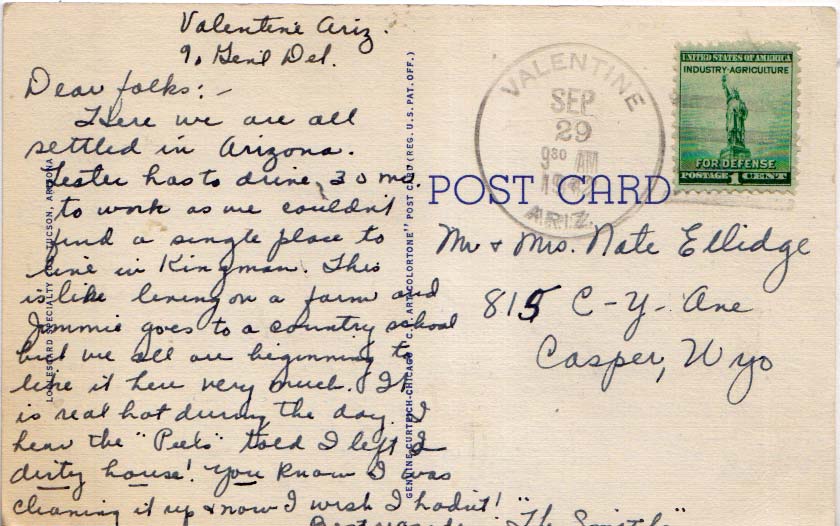 Valentine Ariz.
% Gen'l Del.
Dear folks:-
Here we are all
settled in Arizona.
Lester has to drive 30 mi.
to work as we couldn't
find a single place to
live in Kingman. This
is like living on a farm and
Jimmie goes to a country school
but we all are beginning to
like it here very much. It
is real hot during the day. I
hear the "Peeks" told I left a
dirty house! You know I was
cleaning it up & now I wish I hadn't!
Best regards "The Smiths"
LOLLESGARD SPECIALTY CO., TUCSON, ARIZONA
GENUINE CURTEICH-CHICAGO "C.T. ART-COLORTONE" POST CARD (REG. U.S. PAT. OFF.)
POST CARD
VALENTINE
SEP
29
9 30 AM
ARIZ.
UNITED STATES OF AMERICA
INDUSTRY-AGRICULTURE
FOR DEFENSE
POSTAGE 1 CENT
Mr & Mrs. Nate Ellidge
815 C-Y-Ave
Casper, Wyo